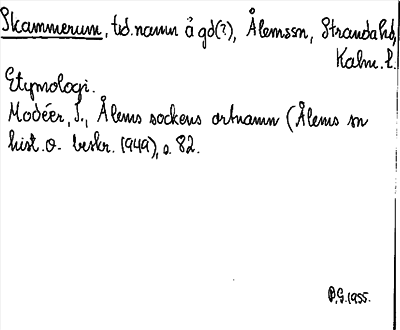 Skammerum, tid. namn å gd(?), Ålemssn, Strandahd,
Kalm. l.
Etymologi.
Modéer, I., Ålems sockens ortnamn (Ålems sn
hist. o. beskr. 1949), s. 82.
B.G. 1955.